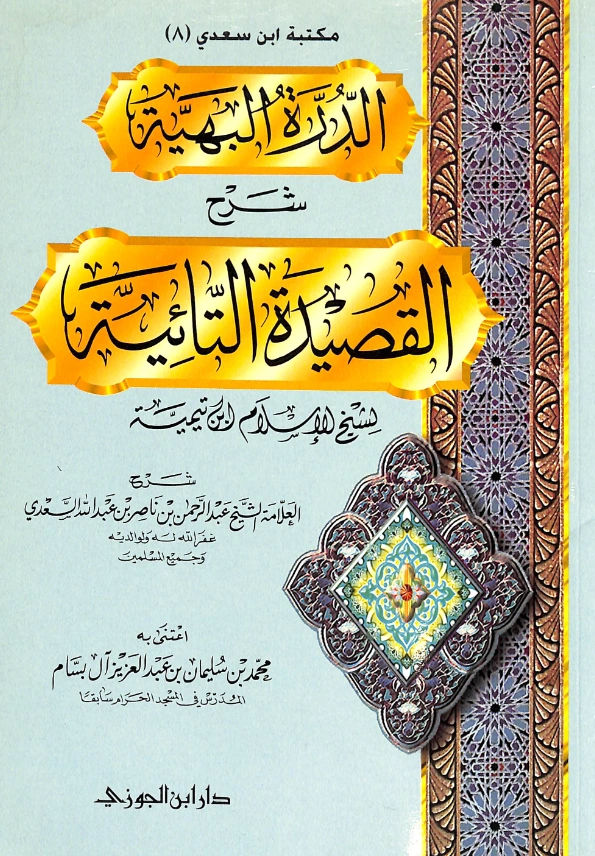 مكتبة ابن سعدي (٨)
الدُّرَّةُ البَهِيَّة
شَرْح
القَصِيْدَة التَّائِيَّة
لشيخ الإسلام ابن تيميَّة
شَرْح
العَلّامَة الشَّيْخ عَبد الرَّحمٰن بن نَاصِر بن عَبدالله السَّعدي
غفر الله له ولوالديه
وجميع المسلمين
اعتنى به
محمّد بن سُليمان بن عَبد العَزيز آل بسّام
المُدَرّس في المسْجد الحَرام سَابقًا
دار ابن الجوزي